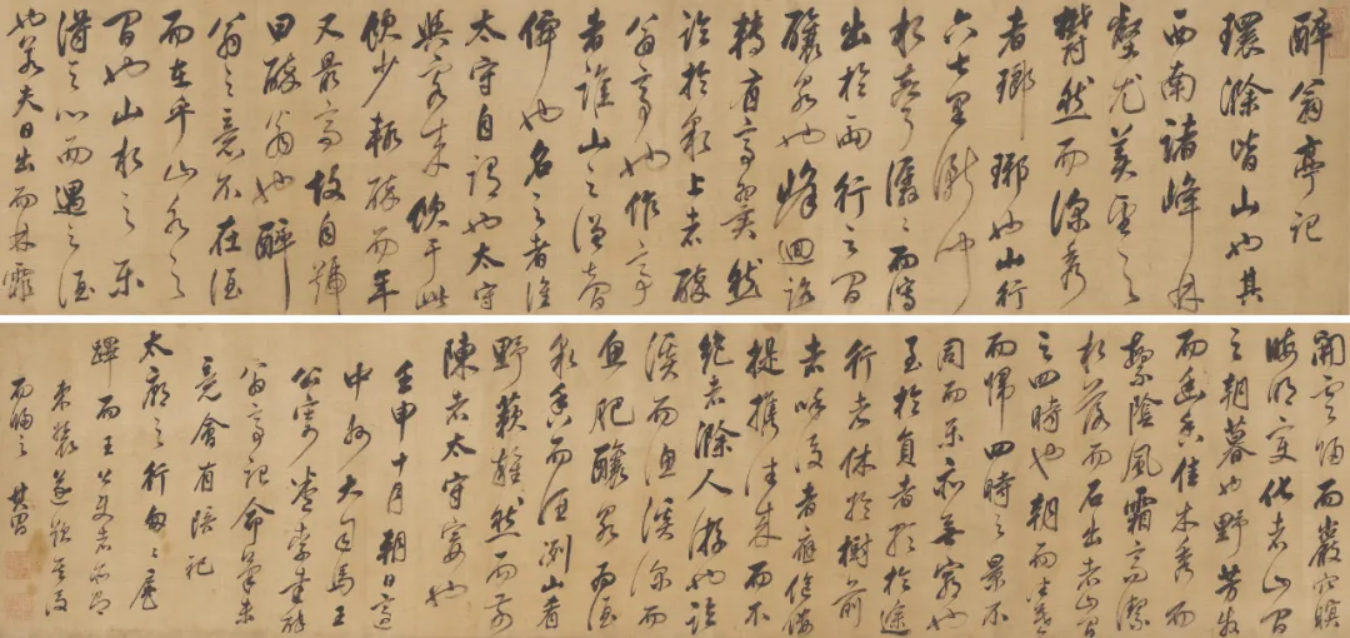 醉翁亭記
環滁皆山也其
西南諸峰林
壑尤美望之
蔚然而深秀
者瑯琊也山行
六七里漸聞
水聲潺潺而瀉
出於兩行之間
釀泉也峰迴路
轉有亭翼然
臨於泉上者醉
翁亭也作亭
者誰山之僧智
僊也名之者誰
太守自謂也太守
與客來飲于此
飲少輒醉而年
又最高故自號
曰醉翁也醉
翁之意不在酒
而在乎山水之
間也山水之樂
得之心而寓之酒
也若夫日出而林霏
開雲歸而巖穴暝
晦明變化者山間
之朝暮也野芳發
而幽香佳木秀而
繁陰風霜高潔
水落而石出者山間
之四時也朝而往暮
而歸四時之景不
同而樂亦無窮也
至於負者歌於途
行者休於樹前
者呼後者應傴僂
提攜往來而不
絕者滁人游也臨
溪而漁溪深而
魚肥釀泉為酒
泉香而酒洌山肴
野蔌雜然而前
陳者太守宴也
壬申十月朝日過
中州大司馬王
公寓書醉
翁亭記命筆未
竟會有陪祀
太廟之行匆匆扈
蹕而王公
遂
而歸之 其昌